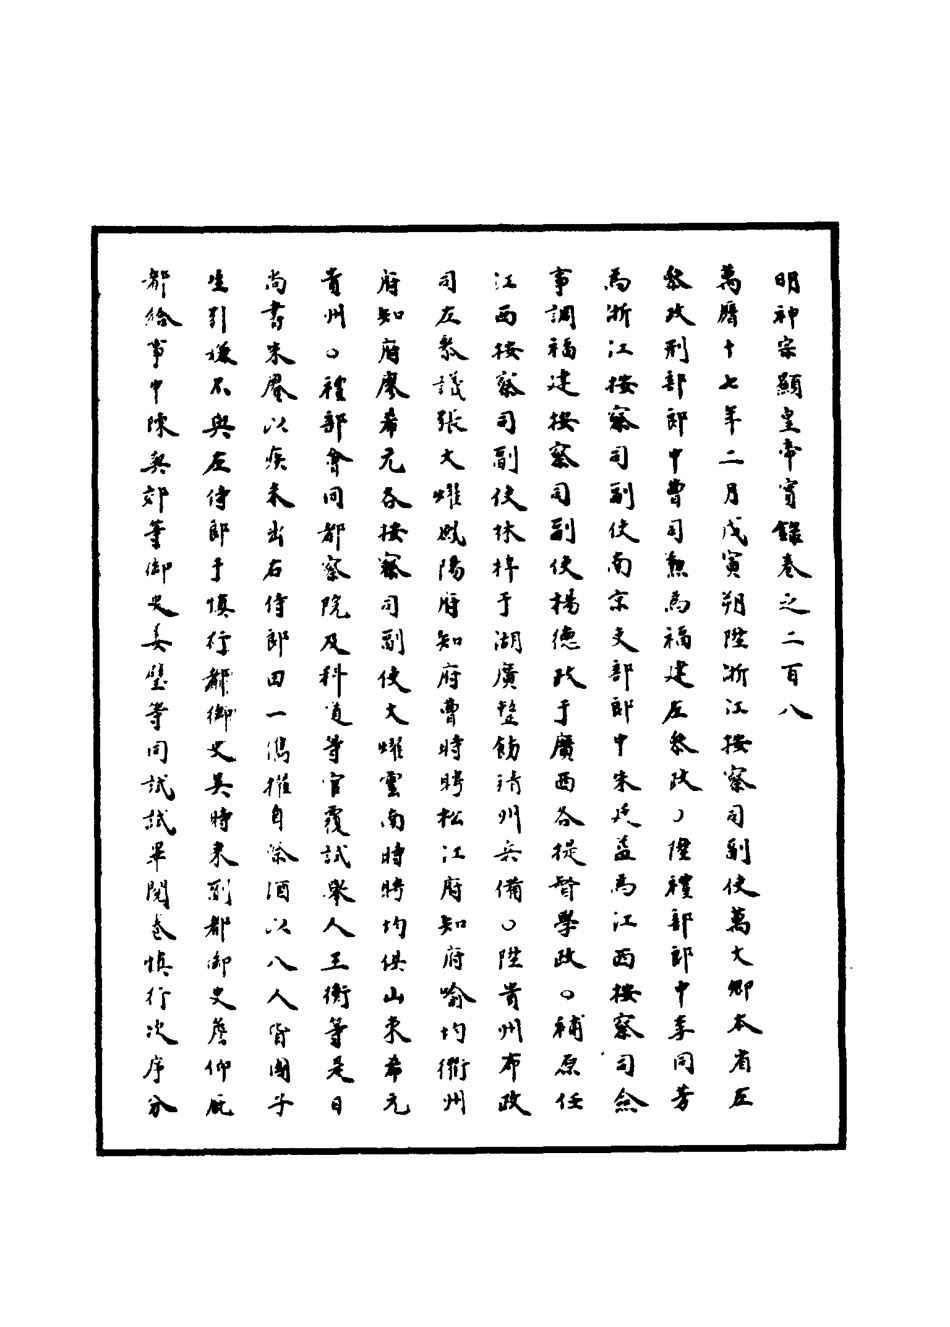 明神宗顯皇帝實錄卷之二百八
萬曆十七年二月戊寅朔陞浙江按察司副使萬文卿本省左
參政刑部郎中曹司勳為福建左參政○陞禮部郎中李同芳
為浙江按察司副使南京吏部郎中朱廷益為江西按察司僉
事調福建按察司副使楊德政于廣西各提督學政○補原任
江西按察司副使林梓于湖廣整飭靖州兵備○陞貴州布政
司左參議張文耀鳳陽府知府曹時聘松江府知府喻均衢州
府知府廖希元各按察司副使文耀雲南時聘均俱山東希元
貴州○禮部會同都察院及科道等官覆試舉人王衡等是日
尚書朱賡以疾未出右侍郎田一儁推自祭酒以八人皆國子
生引嫌不與左侍郎于慎行都御史吳時來副都御史詹仰庇
都給事中陳與郊等御史姜璧等同試試畢閱卷慎行次序分